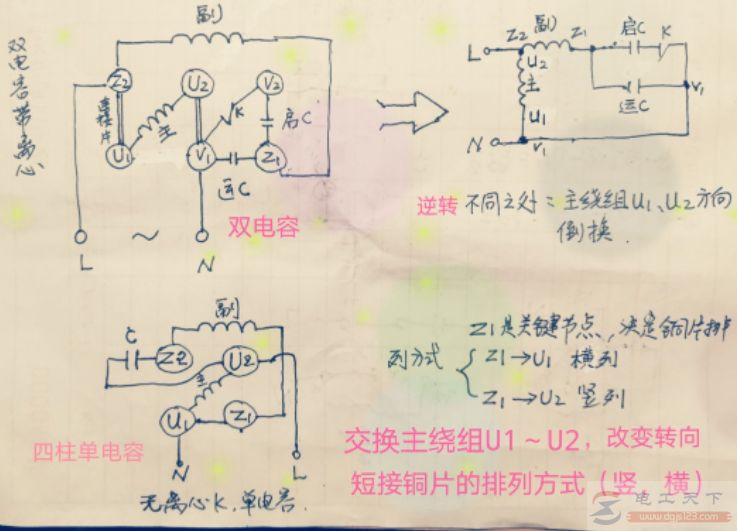 双电容带离心
副
Z2
U2
V2
连接片
主
K
启C
U1
V1
Z1
运C
双电容
L ~ N
Z2 副 Z1 启C K
L
U2
主
U1
运C
V1
N
V1
逆转 不同之处:主绕组U1、U2方向
倒换.
副
C
Z2
U2
主
U1
Z1
四柱单电容
N
L
无离心K,单电容.
Z1是关键节点,决定铜片排
列方式 { Z1→U1 横列
Z1→U2 竖列
交换主绕组U1~U2,改变转向
短接铜片的排列方式(竖、横)
电工天下
www.dgjs123.com